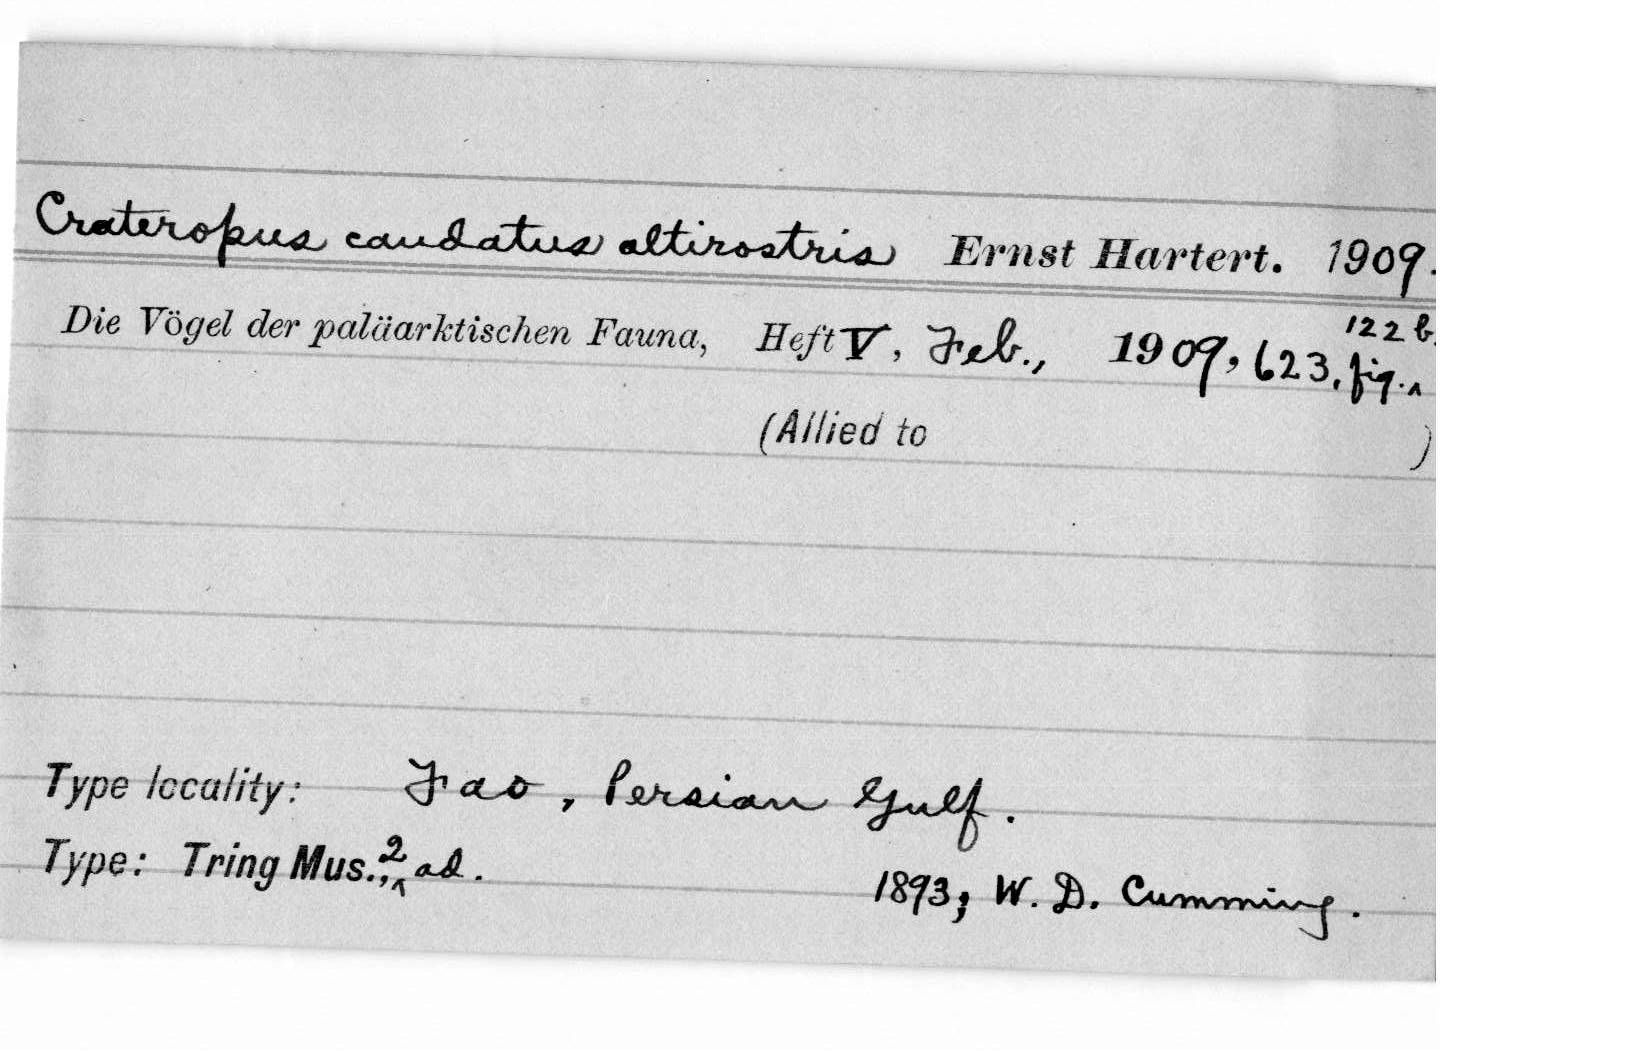 Crateropus caudatus altirostris Ernst Hartert. 1909.
Die Vögel der paläarktischen Fauna, Heft V, Feb., 1909, 623, fig. ‸ 122 b.
(Allied to )
Type locality: Fao, Persian Gulf.
Type: Tring Mus., ‸ 2 ad. 1893; W. D. Cumming.